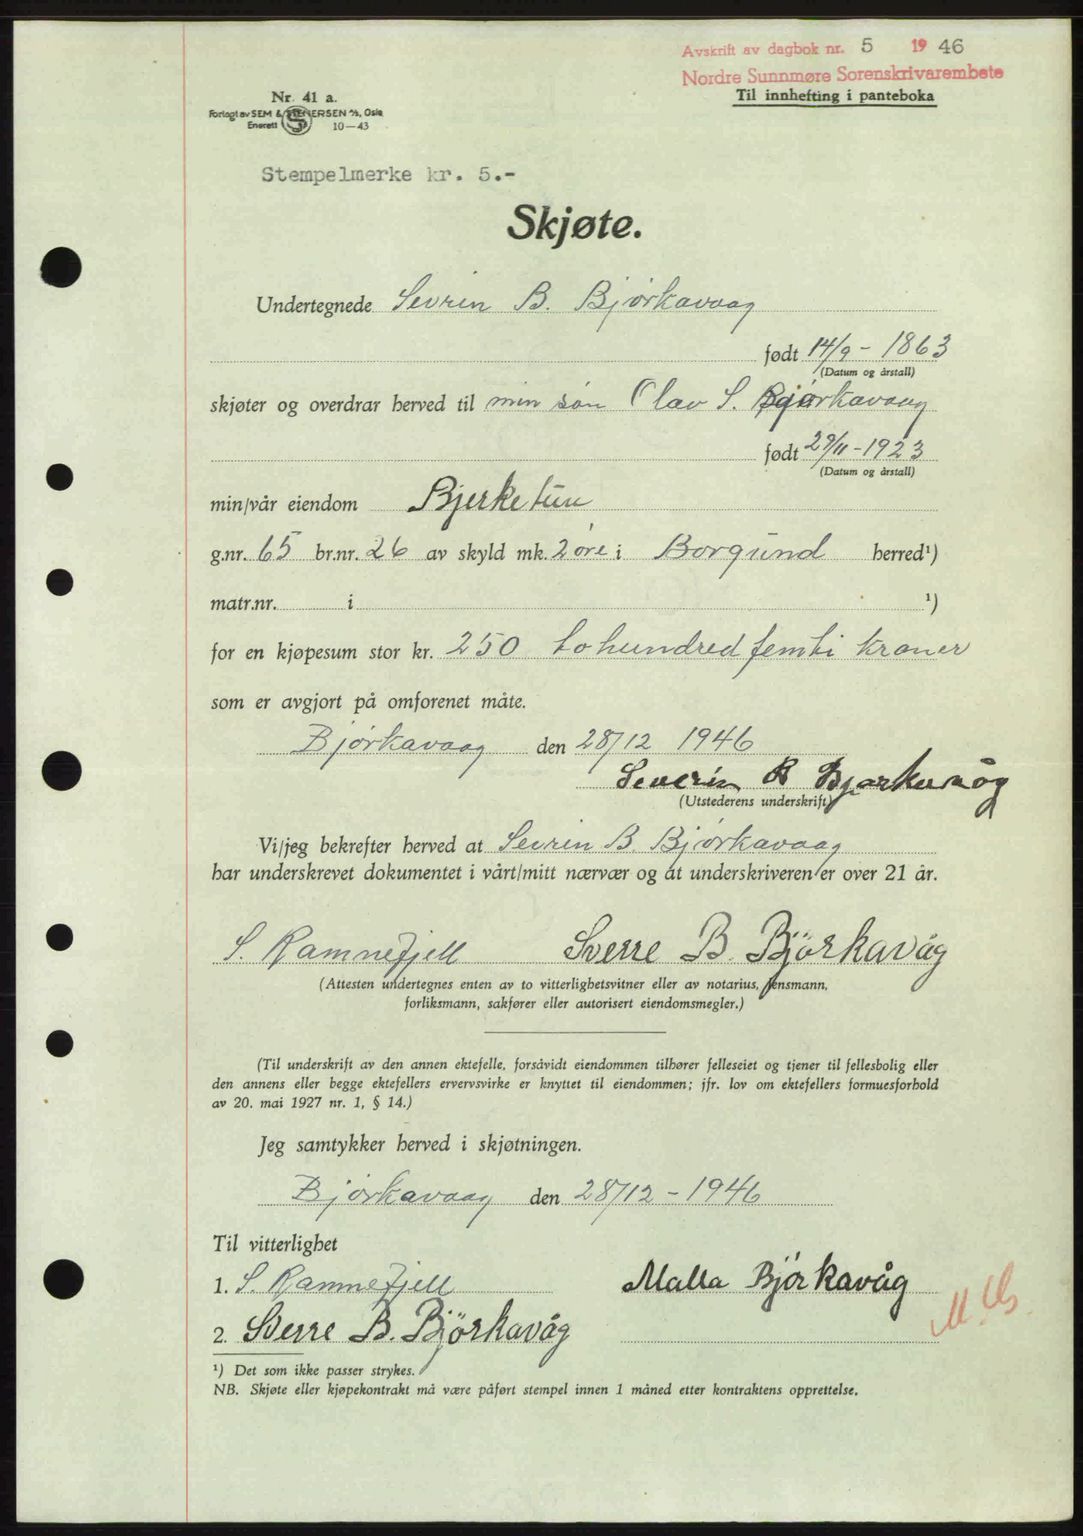 Avskrift av dagbok nr. 5 1946
Nordre Sunnmøre Sorenskrivarembete
Til innhefting i panteboka
Nr. 41 a.
Forlagt av SEM & STENERSEN A/S, Oslo
Enerett S 10—43
Stempelmerke kr. 5.-
Skjøte.
Undertegnede Sevrin B. Bjørkavaag
født 14/9 - 1863
(Datum og årstall)
skjøter og overdrar herved til min søn Olav S. Bjørkavaag
født 29/11-1923
(Datum og årstall)
min/vår eiendom Bjerketun
g.nr. 65 br.nr. 26 av skyld mk. 2 øre i Borgund herred¹)
matr.nr. i ¹)
for en kjøpesum stor kr. 250 tohundredfemti kroner
som er avgjort på omforenet måte.
Bjørkavaag den 28/12 1946
Severin B Bjørkavåg
(Utstederens underskrift)
Vi/jeg bekrefter herved at Sevrin B. Bjørkavaag
har underskrevet dokumentet i vårt/mitt nærvær og at underskriveren er over 21 år.
S. Ramnefjell Sverre B. Bjørkavåg
(Attesten undertegnes enten av to vitterlighetsvitner eller av notarius, lensmann,
forliksmann, sakfører eller autorisert eiendomsmegler.)
(Til underskrift av den annen ektefelle, forsåvidt eiendommen tilhører felleseiet og tjener til fellesbolig eller
den annens eller begge ektefellers ervervsvirke er knyttet til eiendommen; jfr. lov om ektefellers formuesforhold
av 20. mai 1927 nr. 1, § 14.)
Jeg samtykker herved i skjøtningen.
Bjørkavaag den 28/12 - 1946
Til vitterlighet
1. S. Ramnefjell Malla Bjørkavåg
2. Sverre B. Bjørkavåg
¹) Det som ikke passer strykes.
NB. Skjøte eller kjøpekontrakt må være påført stempel innen 1 måned etter kontraktens opprettelse.